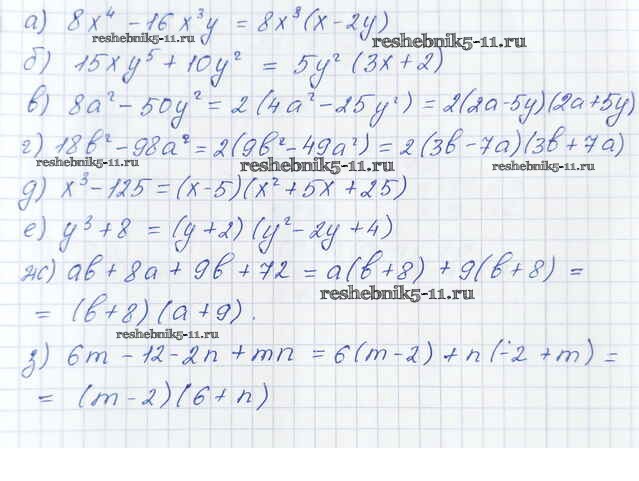 а) 8x⁴ - 16x³y = 8x³(x-2y)
reshebnik5-11.ru
reshebnik5-11.ru
б) 15xy⁵ + 10y² = 5y²(3x+2)
в) 8a² - 50y² = 2(4a² - 25y²) = 2(2a-5y)(2a+5y)
г) 18b² - 98a² = 2(9b² - 49a²) = 2(3b-7a)(3b+7a)
reshebnik5-11.ru
reshebnik5-11.ru
reshebnik5-11.ru
д) x³ - 125 = (x-5)(x² + 5x + 25)
е) y³ + 8 = (y+2)(y² - 2y + 4)
ж) ab + 8a + 9b + 72 = a(b+8) + 9(b+8) =
reshebnik5-11.ru
= (b+8)(a+9).
reshebnik5-11.ru
з) 6m - 12 - 2n + mn = 6(m-2) + n(-2+m) =
= (m-2)(6+n)